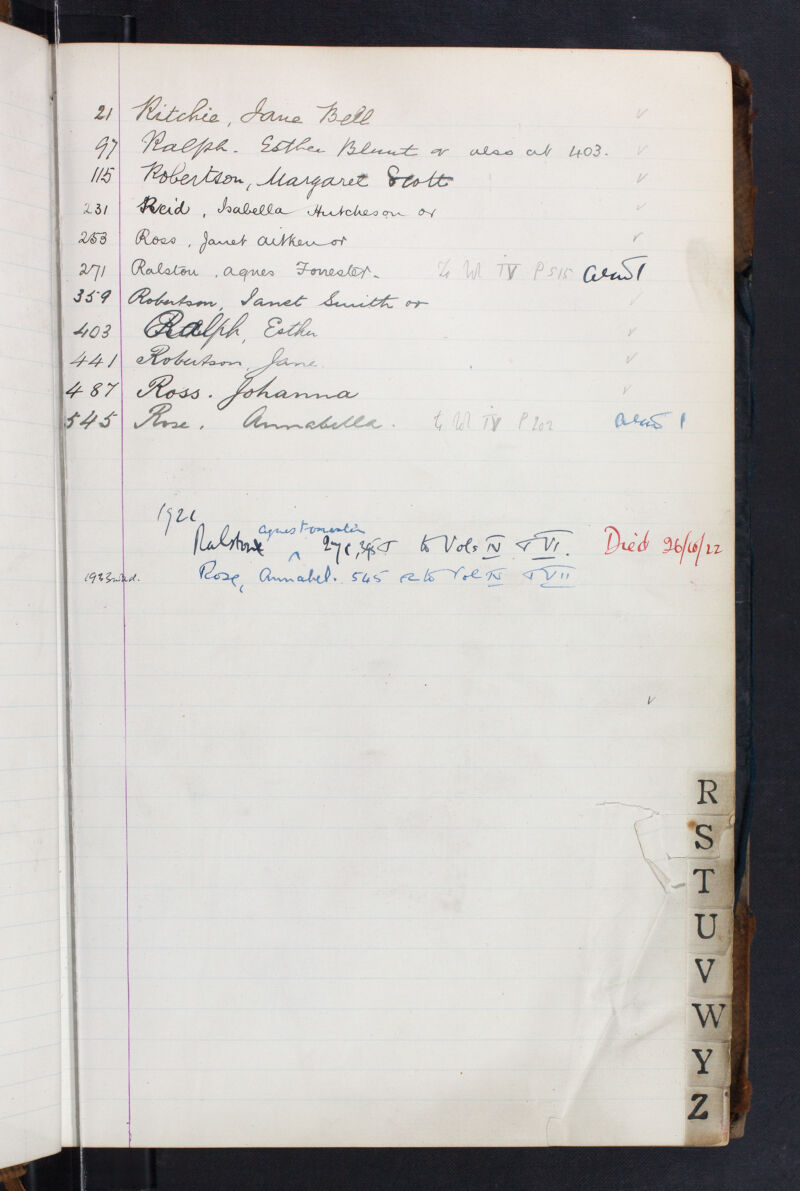 21 Ritchie, Jane Bell
97 Ralph. Esther Blunt or also at 403.
115 Robertson, Margaret Scott
231 Reid, Isabella Hutcheson or
253 Ross, Janet Aitken or
271 Ralston, Agnes Forrester. To Vol IV P 515
359 Robertson, Janet Smith or
403 Ralph, Esther
441 Robertson, Jane.
487 Ross. Johanna
545 Rose. Annabella. to Vol IV P 202
1921
Agnes Forrester
Ralston 271, to Vols IV & VI. Died 26/10/22
Rose, Annabel. 545 to Vol IV & VII
R
S
T
U
V
W
Y
Z